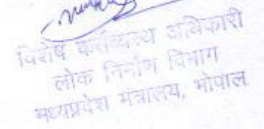 विशेष कर्तव्यस्थ अधिकारी
लोक निर्माण विभाग
मध्यप्रदेश मंत्रालय, भोपाल